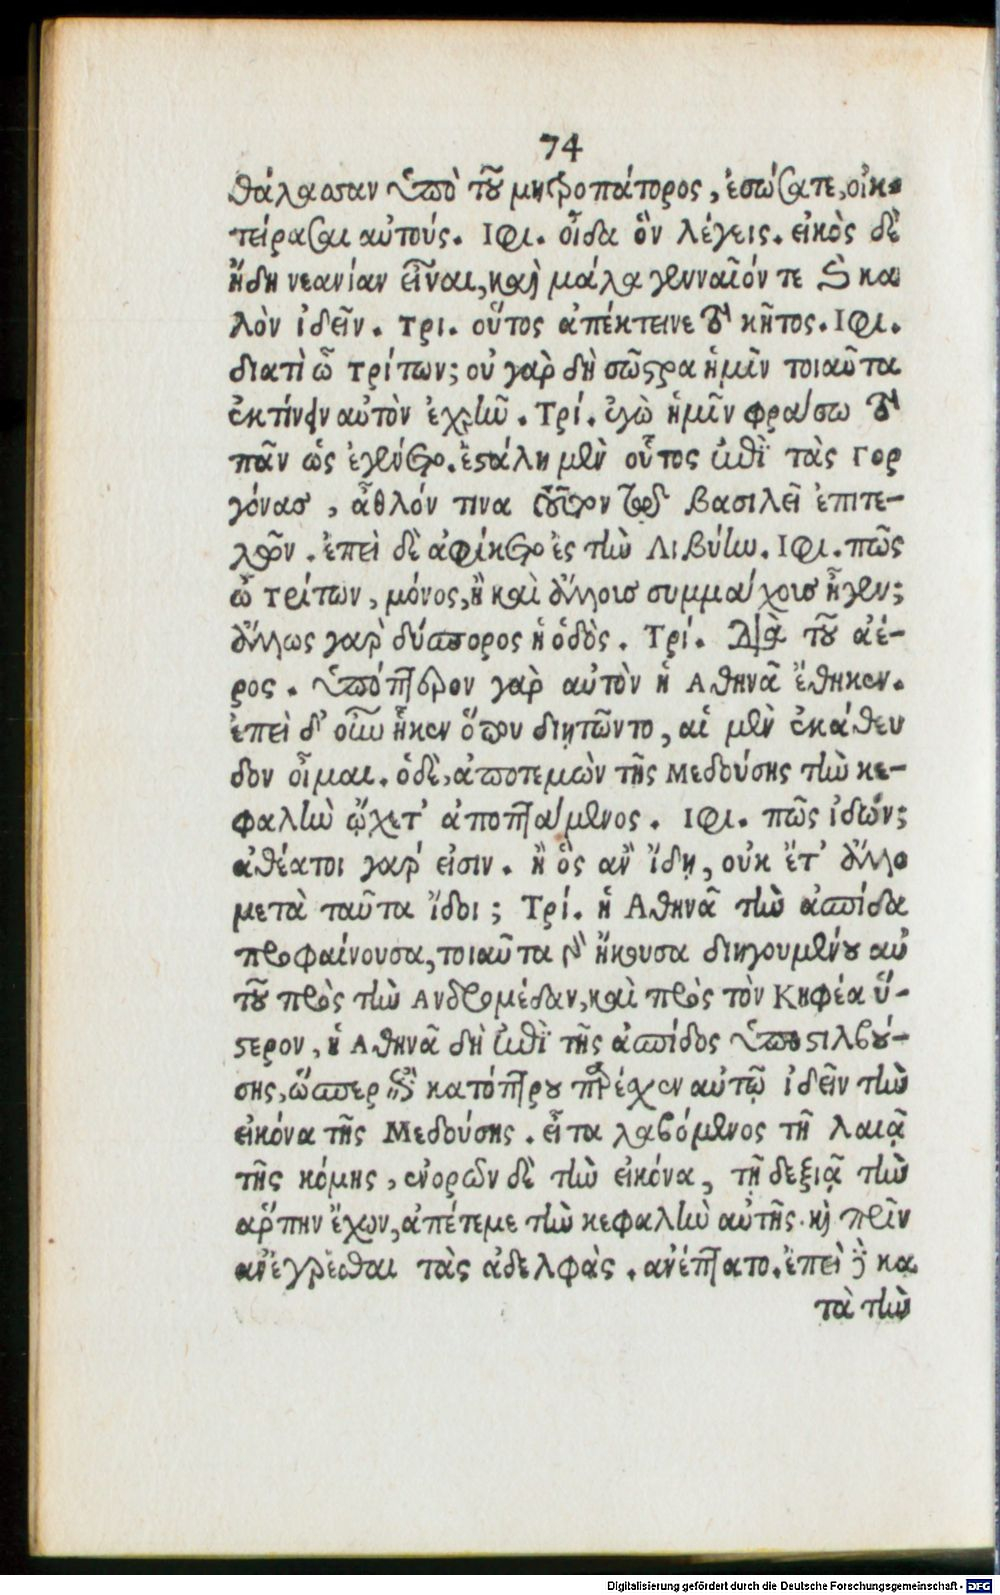 74
θάλασσαν ὑπὸ τοῦ μητροπάτορος, ἐσώσατε, οἰκ-
τείρασαι αὐτούς. Ιφι. οἶδα ὃν λέγεις. εἰκὸς δὲ
ἤδη νεανίαν εἶναι, καὶ μάλα γενναῖόν τε καὶ κα
λὸν ἰδεῖν. Τρι. οὗτος ἀπέκτεινε τὸ κῆτος. Ιφι.
διατὶ ὦ τρίτων; οὐ γὰρ δὴ σῶστρα ἡμῖν τοιαῦτα
ἐκτίνειν αὐτὸν ἐχρῆν. Τρί. ἐγὼ ἡμῖν φράσω τὸ
πᾶν ὡς ἐγένετο. ἐστάλη μὲν οὗτος ἐπὶ τὰς γορ
γόνας, ἆθλόν τινα τοῦτον τῷ βασιλεῖ ἐπιτε-
λῶν. ἐπεὶ δὲ ἀφίκετο ἐς τὴν Λιβύην. Ιφι. πῶς
ὦ τρίτων, μόνος, ἢ καὶ ἄλλους συμμάχους ἦγεν;
ἄλλως γὰρ δύσπορος ἡ ὁδὸς. Τρί. Διὰ τοῦ ἀέ-
ρος. ὑπόπτερον γὰρ αὐτὸν ἡ Αθηνᾶ ἔθηκεν.
ἐπεὶ δ' οὖν ἧκεν ὅπου διῃτῶντο, αἱ μὲν ἐκάθευ
δον οἶμαι. ὁδὲ, ἀποτεμὼν τῆς Μεδούσης τὴν κε-
φαλὴν ᾤχετ' ἀποπτάμενος. Ιφι. πῶς ἰδών;
ἀθέατοι γάρ εἰσιν. ἢ ὃς ἂν ἴδῃ, οὐκ ἔτ' ἄλλο
μετὰ ταῦτα ἴδοι; Τρί. ἡ Αθηνᾶ τὴν ἀσπίδα
προφαίνουσα, τοιαῦτα γὰρ ἤκουσα διηγουμένου αὐ
τοῦ πρὸς τὴν Ανδρομέδαν, καὶ πρὸς τὸν Κηφέα ὕ-
στερον, ἡ Αθηνᾶ δὴ ἐπὶ τῆς ἀσπίδος ὑποστιλβού-
σης, ὥσπερ ἐπὶ κατόπτρου παρέχεν αὐτῷ ἰδεῖν τὴν
εἰκόνα τῆς Μεδούσης. εἶτα λαβόμενος τῇ λαιᾷ
τῆς κόμης, ἐνορῶν δὲ τὴν εἰκόνα, τῇ δεξιᾷ τὴν
ἅρπην ἔχων, ἀπέτεμε τὴν κεφαλὴν αὐτῆς. καὶ πρὶν
ἀνέγρεσθαι τὰς ἀδελφὰς. ἀνέπτατο. ἐπεὶ δὲ κα
τὰ τὴν
Digitalisierung gefördert durch die Deutsche Forschungsgemeinschaft - DFG